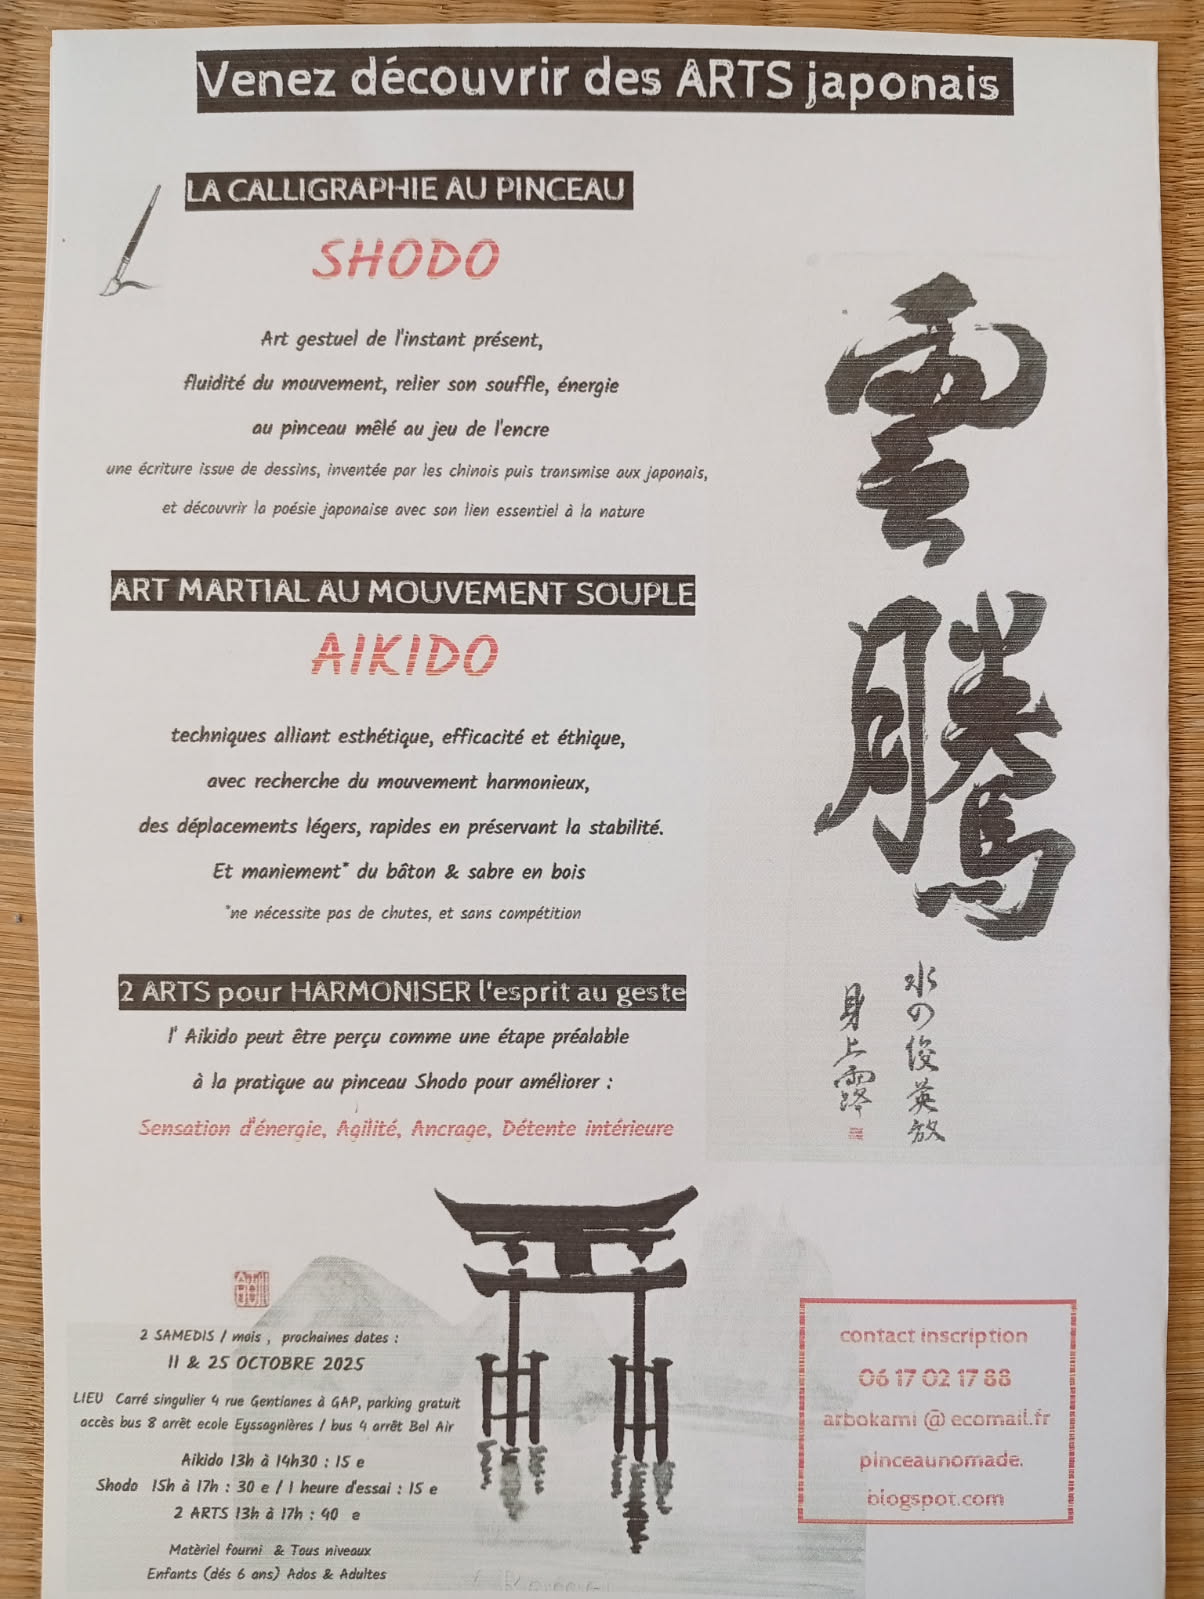 Venez découvrir des ARTS japonais
LA CALLIGRAPHIE AU PINCEAU
SHODO
Art gestuel de l'instant présent,
fluidité du mouvement, relier son souffle, énergie
au pinceau mêlé au jeu de l'encre
une écriture issue de dessins, inventée par les chinois puis transmise aux japonais,
et découvrir la poésie japonaise avec son lien essentiel à la nature
ART MARTIAL AU MOUVEMENT SOUPLE
AIKIDO
techniques alliant esthétique, efficacité et éthique,
avec recherche du mouvement harmonieux,
des déplacements légers, rapides en préservant la stabilité.
Et maniement* du bâton & sabre en bois
*ne nécessite pas de chutes, et sans compétition
2 ARTS pour HARMONISER l'esprit au geste
l' Aikido peut être perçu comme une étape préalable
à la pratique au pinceau Shodo pour améliorer :
Sensation d'énergie, Agilité, Ancrage, Détente intérieure
雲
騰
2 SAMEDIS / mois , prochaines dates :
11 & 25 OCTOBRE 2025
LIEU Carré singulier 4 rue Gentianes à GAP, parking gratuit
accès bus 8 arrêt ecole Eyssagnières / bus 4 arrêt Bel Air
Aikido 13h à 14h30 : 15 e
Shodo 15h à 17h : 30 e / 1 heure d'essai : 15 e
2 ARTS 13h à 17h : 40 e
Matèriel fourni & Tous niveaux
Enfants (dés 6 ans) Ados & Adultes
contact inscription
06 17 02 17 88
arbokami @ ecomail.fr
pinceaunomade.
blogspot.com